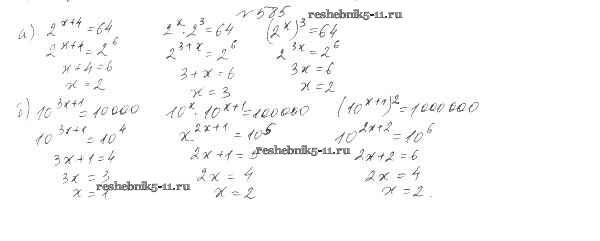 №585
reshebnik5-11.ru
а) 2^{x+4}=64
2^{x+4}=2^6
x+4=6
x=2
2^x·2^3=64
2^{3+x}=2^6
3+x=6
x=3
(2^x)^3=64
2^{3x}=2^6
3x=6
x=2
б) 10^{3x+1}=10000
10^{3x+1}=10^4
3x+1=4
3x=3
x=1
reshebnik5-11.ru
10^x·10^{x+1}=100000
x^{2x+1}=10^5
reshebnik5-11.ru
2x+1=5
2x=4
x=2
(10^{x+1})^2=1000000
10^{2x+2}=10^6
2x+2=6
2x=4
x=2.